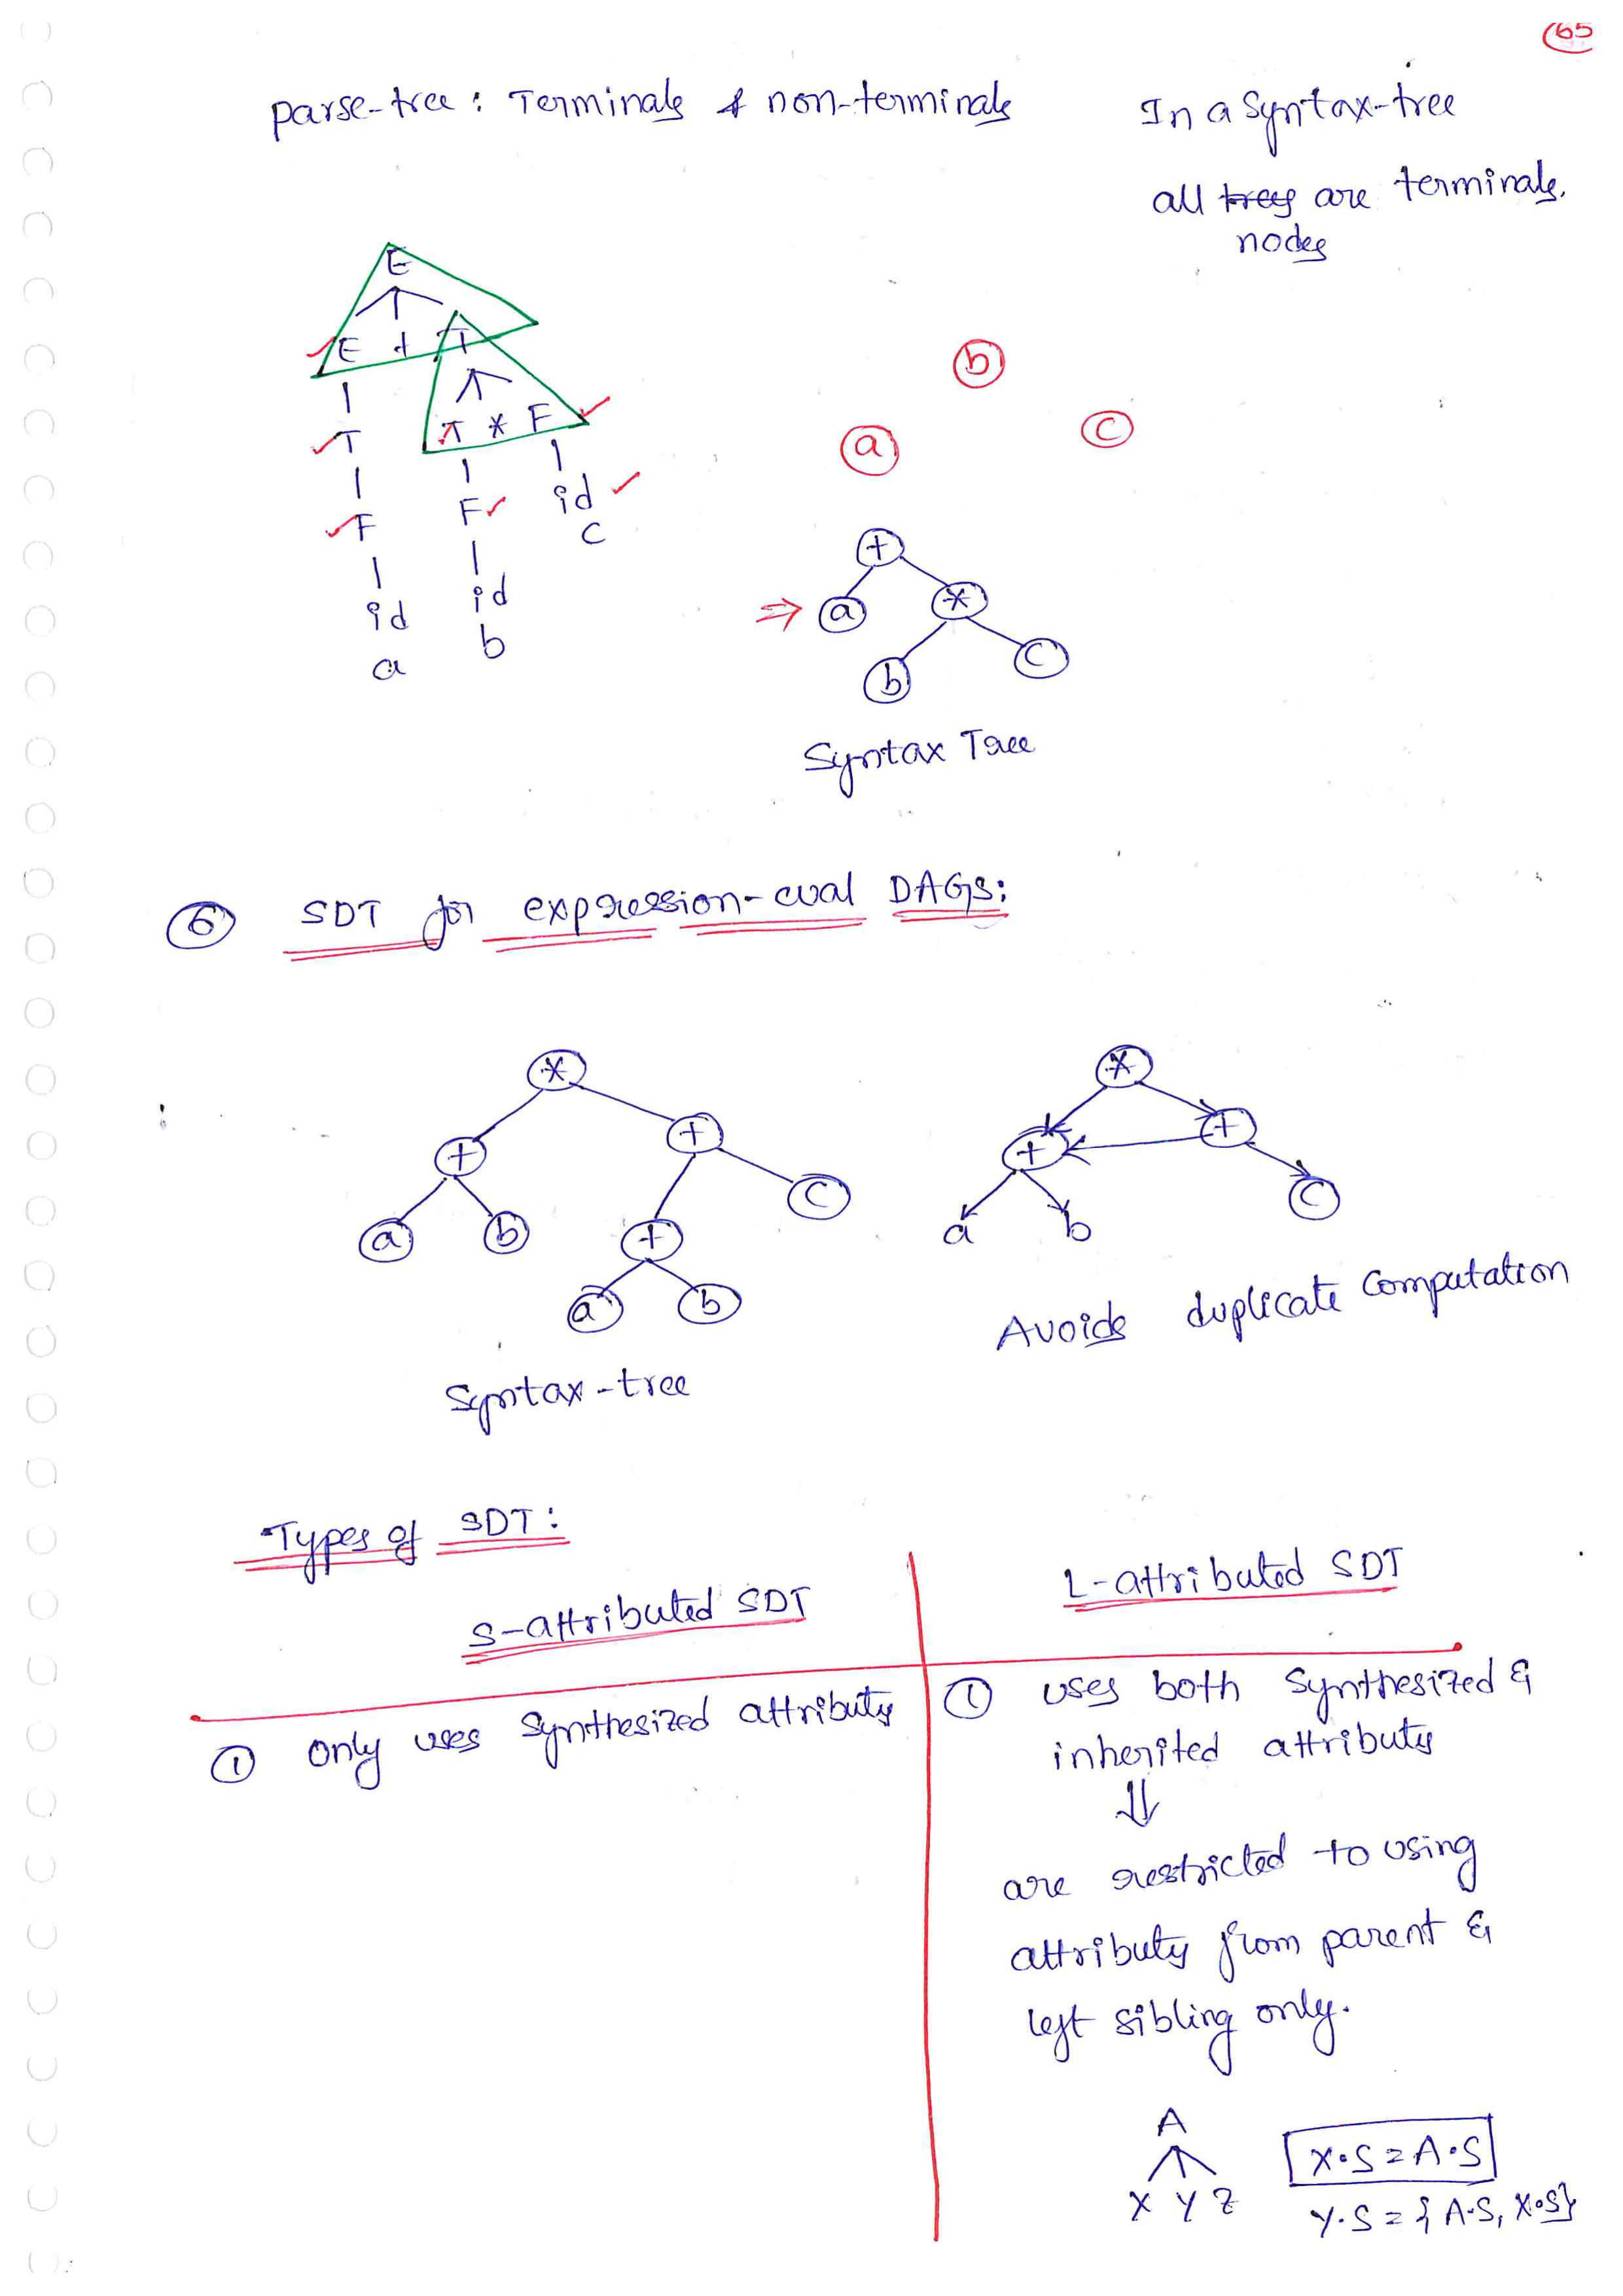 65
parse-tree : Terminals & non-terminals
In a Syntax-tree
all trees are terminals.
nodes
E
E + T
T * F
T
F
id
a
F
id
b
id
c
b
a
c
+
⇒ a *
b c
Syntax Tree
6 SDT for expression-eval DAGs:
*
+ +
a b + c
a b
Syntax-tree
*
+ +
a b c
Avoids duplicate computation
Types of SDT:
S-attributed SDT
① only uses synthesized attributes
L-attributed SDT
① uses both synthesized &
inherited attributes
⇓
are restricted to using
attributes from parent &
left sibling only.
A
X Y Z
X.S = A.S
Y.S = { A.S, X.S}